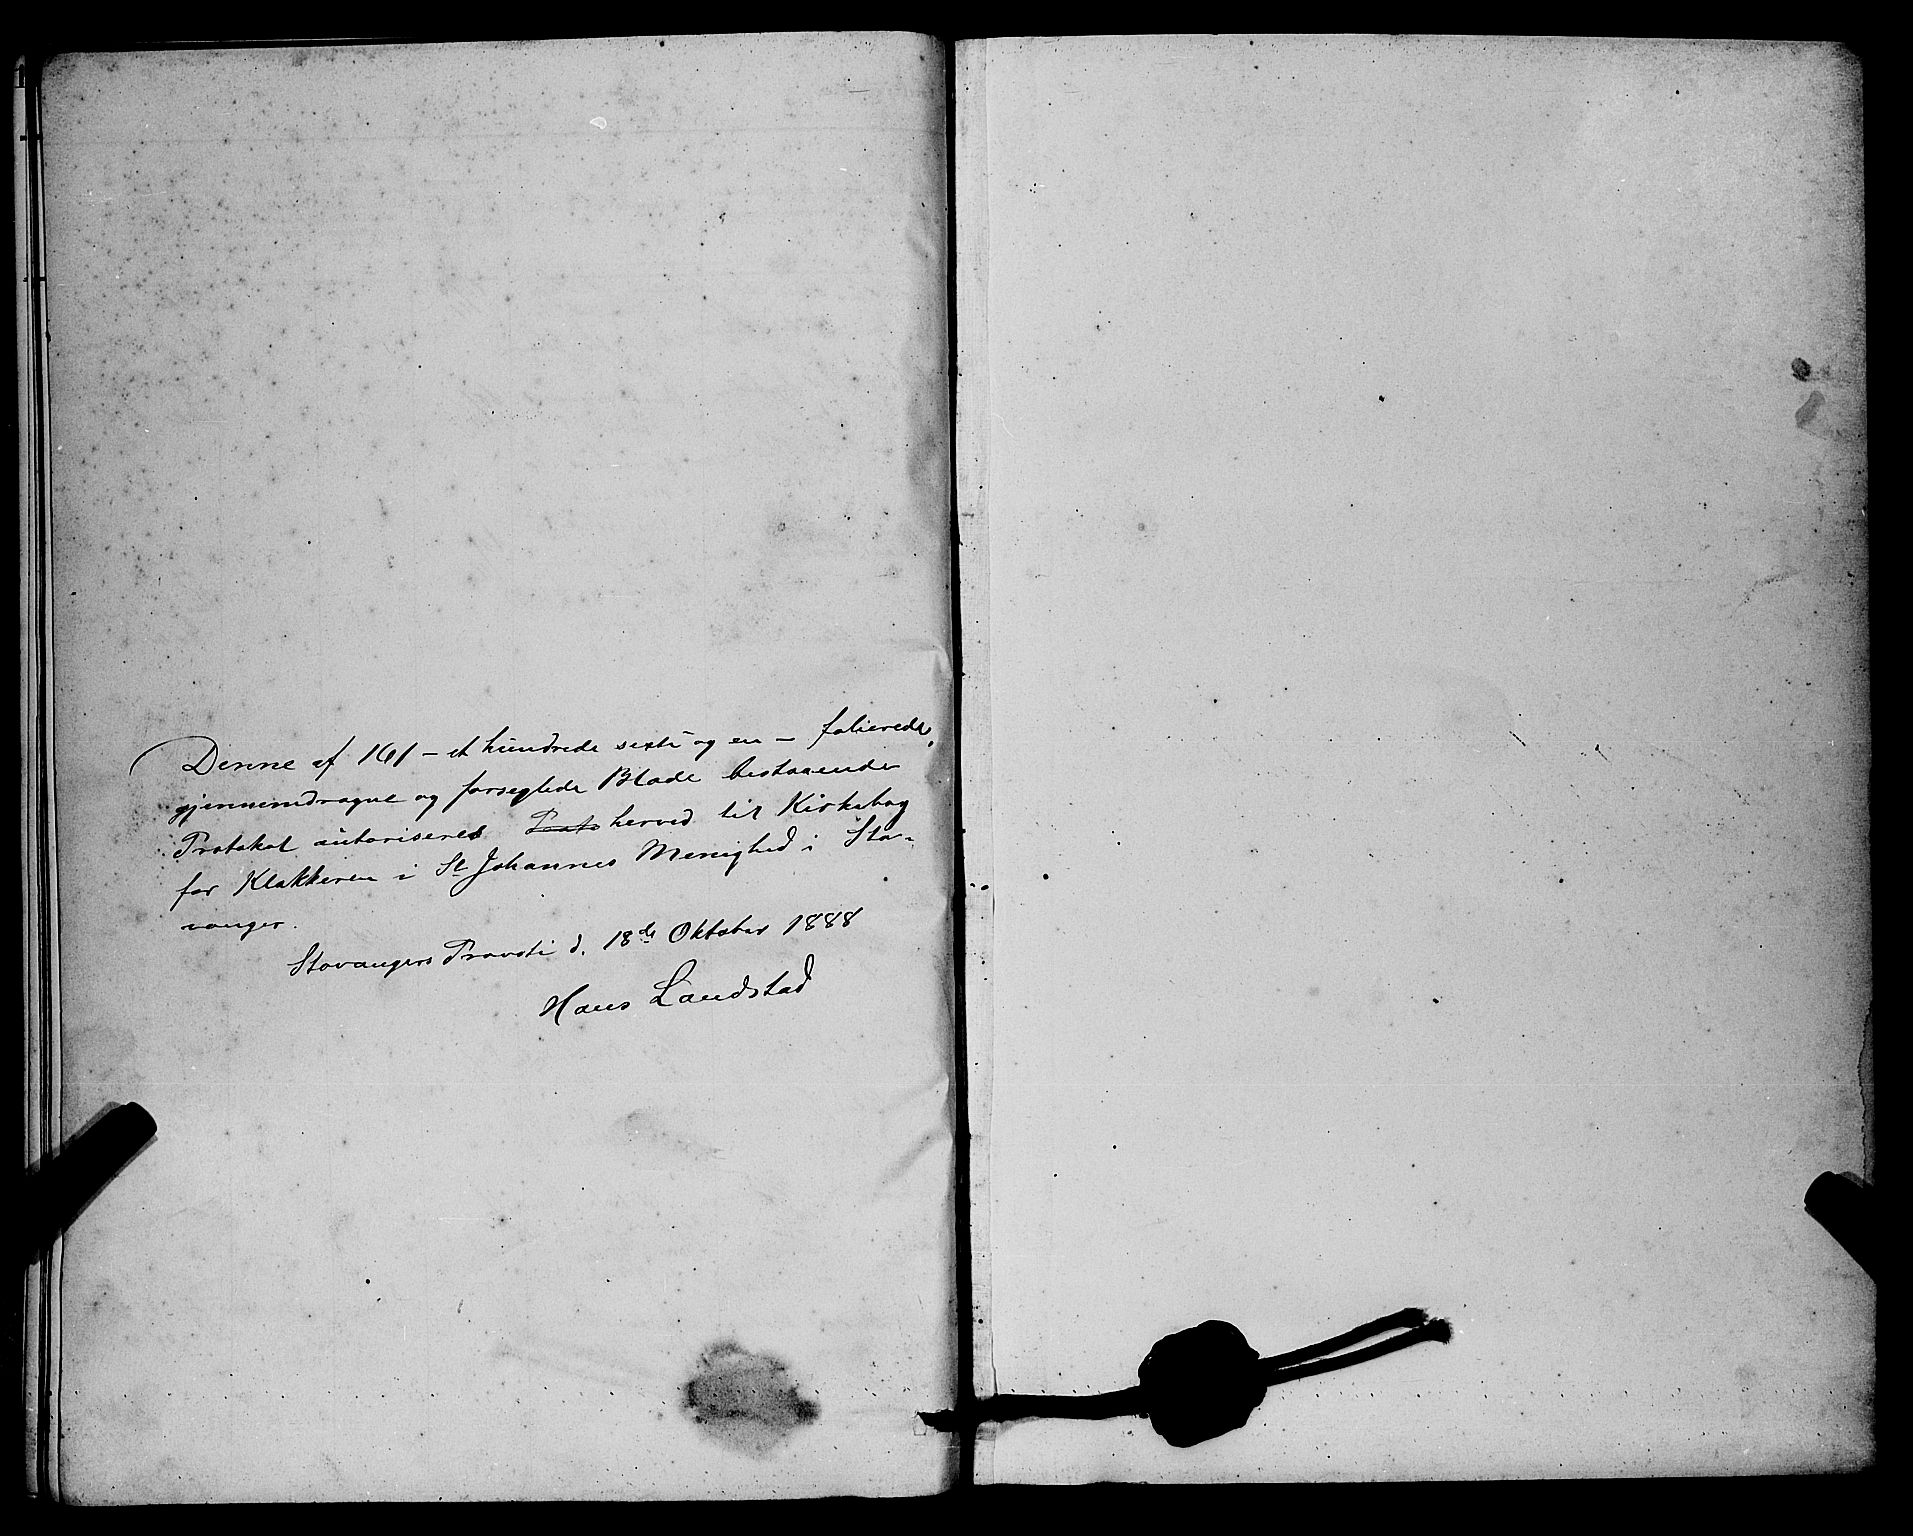 Denne af 161 – et hundrede sexti og en – folierede,
gjennemdragne og forseglede Blade bestaaende
Protokol autoriseres herved til Kirkebog
for Klokkeren i St Johannes Menighed i Sta-
vanger.
Stavangers Provsti d. 18de Oktober 1888
Hans Landstad